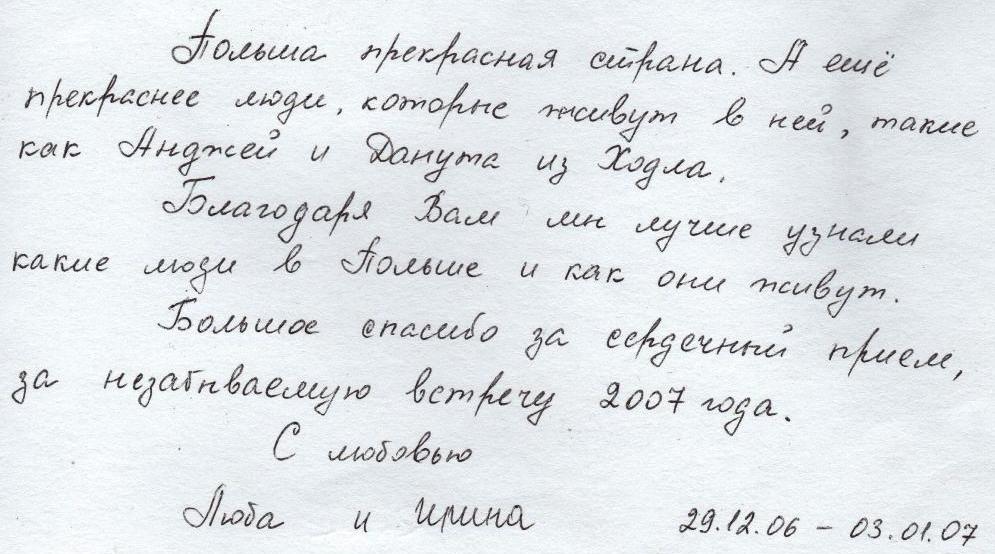 Польша прекрасная страна. А ещё
прекраснее люди, которые живут в ней, такие
как Анджей и Данута из Ходла.
Благодаря Вам мы лучше узнали
какие люди в Польше и как они живут.
Большое спасибо за сердечный прием,
за незабываемую встречу 2007 года.
С любовью
Люба и Ирина 29.12.06 – 03.01.07